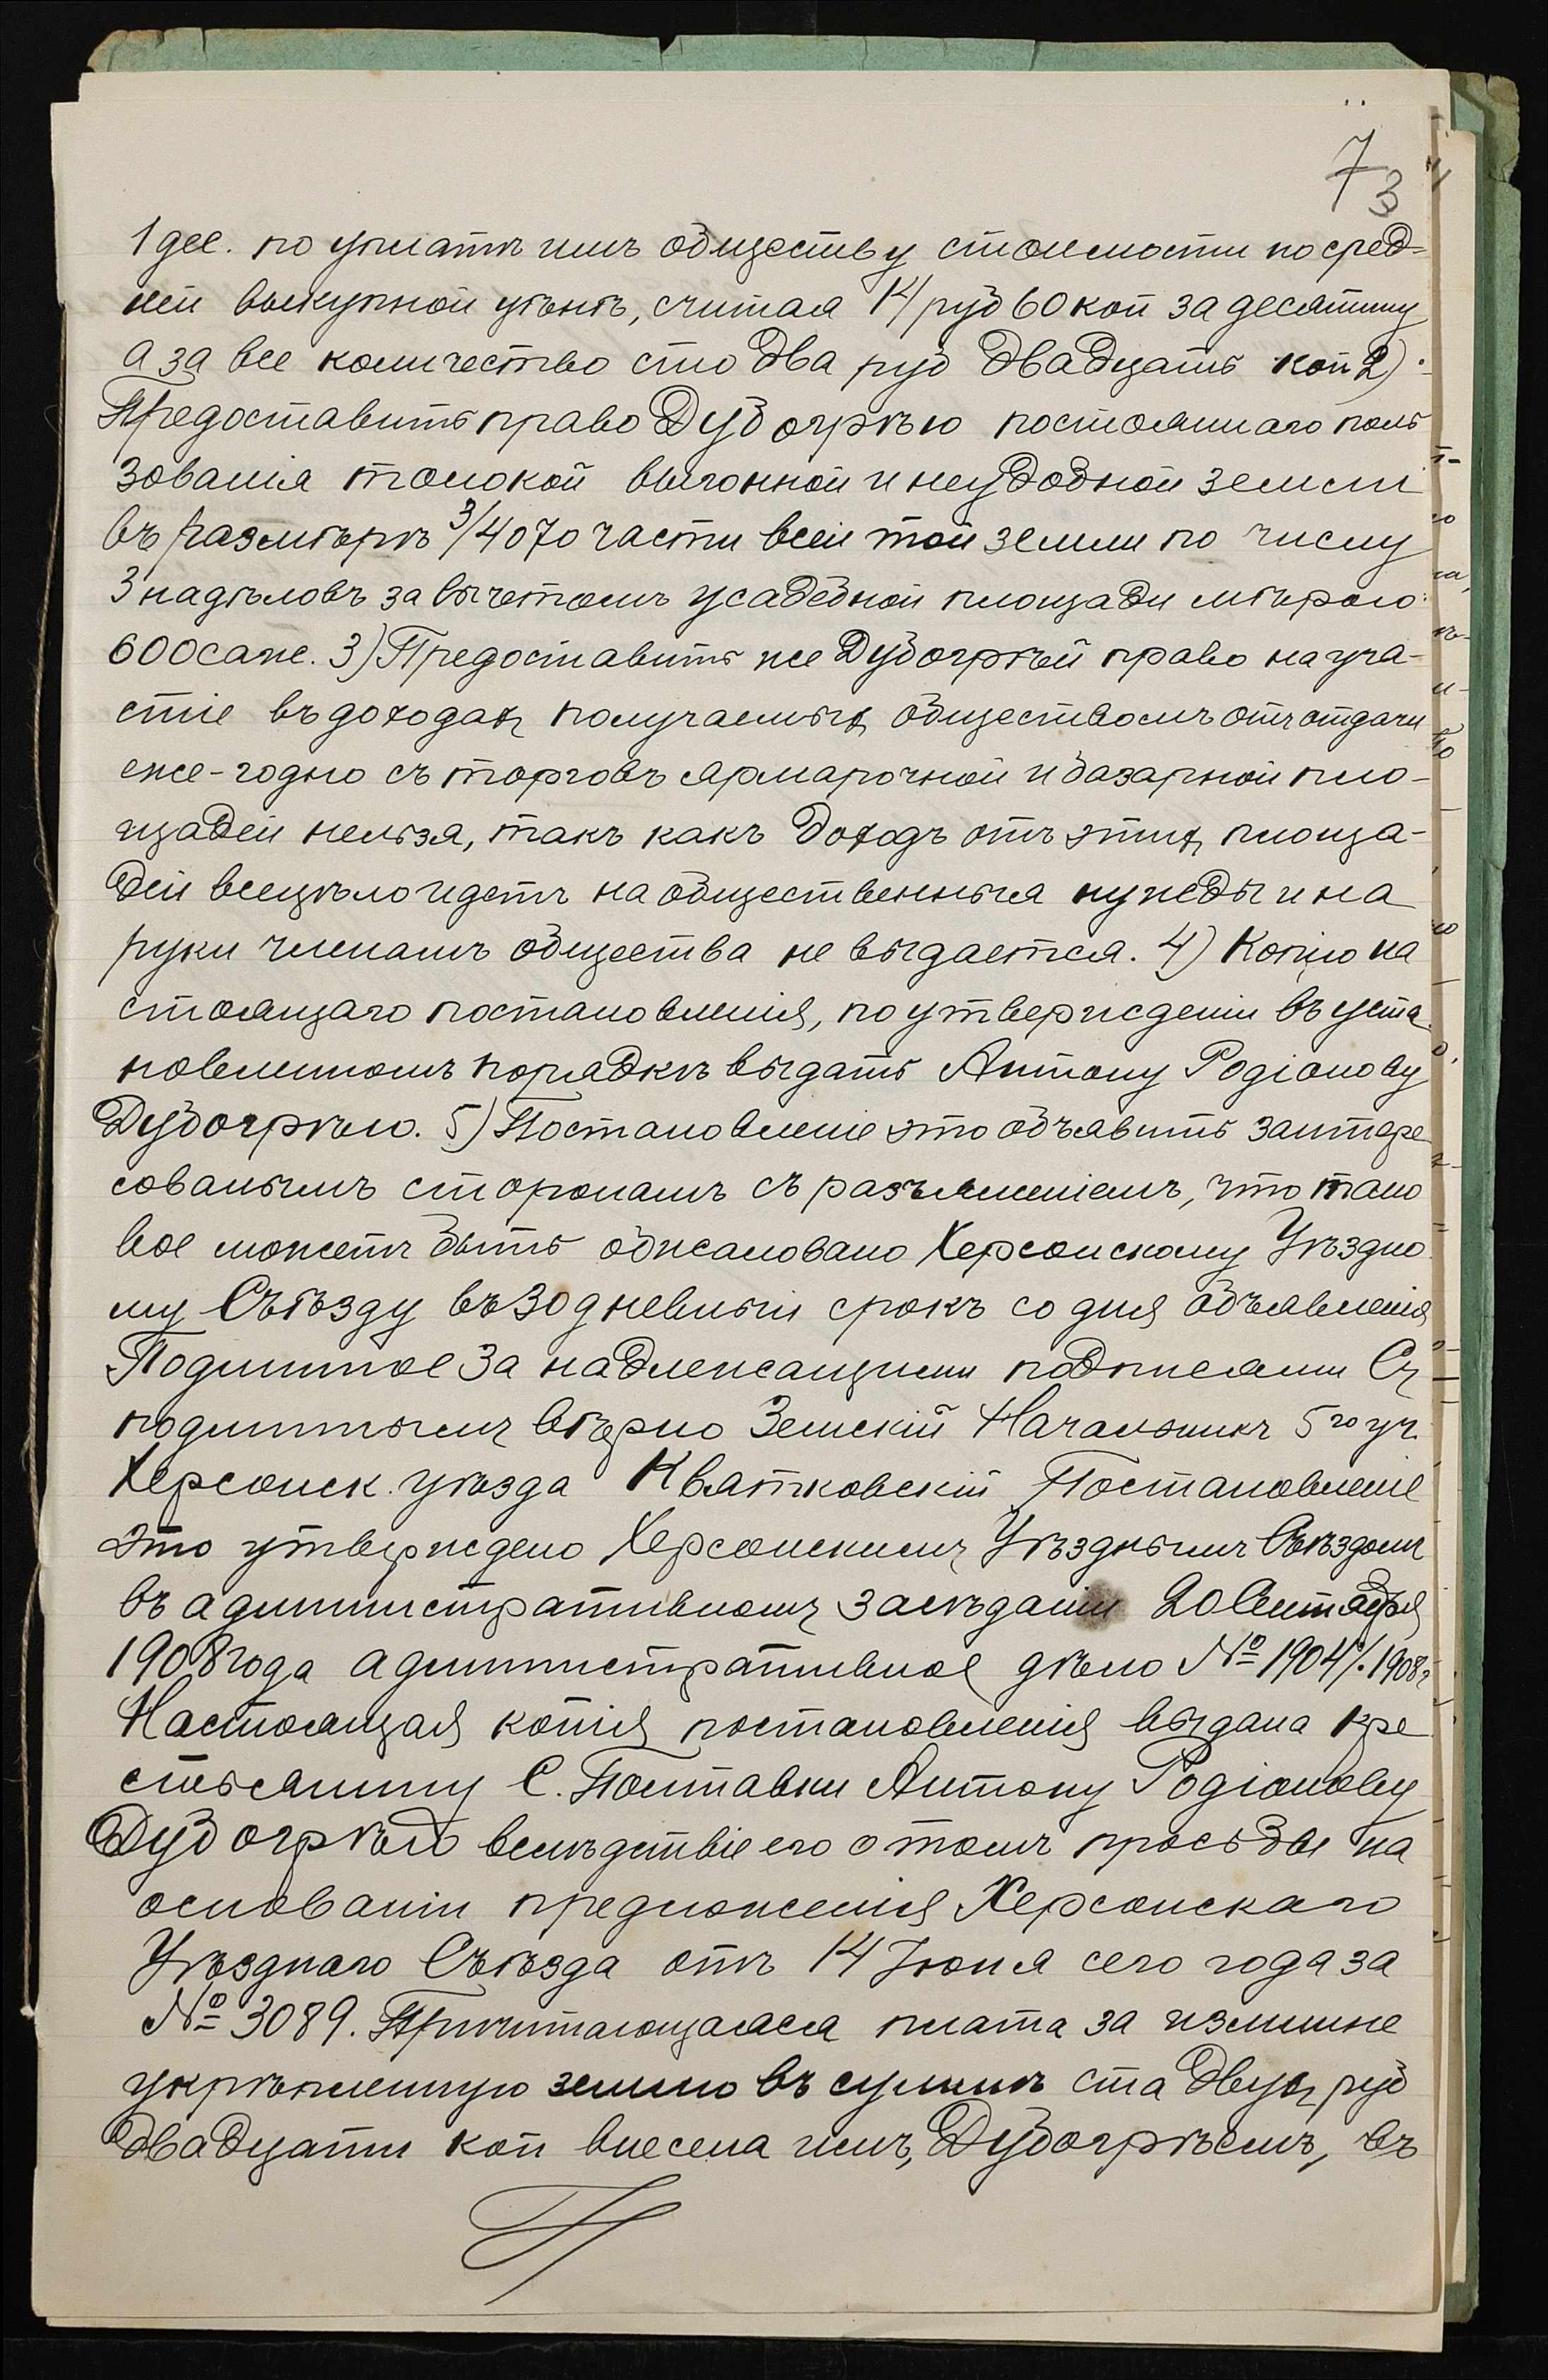 73
1 дес. по уплатѣ имъ обществу стоимости по сред-
ней выкупной цѣнѣ, считая 14 руб 60 коп за десятину
а за все количество сто два руб двадцать коп 2)
Предоставить право Дубогрѣю постояннаго поль
зованія толокой выгонной и неудобной землей
въ размѣрѣ 3/4070 части всей той земли по числу
3 надѣловъ за вычетомъ усадебной площади мѣрою
600 саж. 3) Предоставить же Дубогрѣй право на уча-
стіе въ доходахъ получаемыхъ обществомъ отъ отдачи
еже-годно съ торговъ ярмарочной и базарной пло-
щадей нельзя, такъ какъ доходъ отъ этихъ площа-
дей всецѣло идетъ на общественныя нужды и на
руки членамъ общества не выдается. 4) Копію на
стоящаго постановленія, по утвержденіи въ уста
новленномъ порядкѣ выдать Антону Родіонову
Дубогрѣю. 5) Постановленіе это объявить заитере
сованымъ сторонамъ съ разъясненіемъ, что тако
вое можетъ быть обжаловано Херсонскому Уѣздно
му Съѣзду въ 30 дневный срокъ со дня объявленія
Подлинное за надлежащими подписями Съ
подлиннымъ вѣрно Земскій Начальникъ 5го уч.
Херсонск. уѣзда Квятковскій Постановленіе
это утверждено Херсонскимъ Уѣзднымъ Съѣздомъ
въ административномъ засѣданіи 20 Сентября
1908 года административное дѣло № 1904/. 1908 г
Настоящая копія постановленія выдана кре
стьянину С. Полтавки Антону Родіонову
Дубогрѣю вслѣдствіе его о томъ просьбы на
основаніи предложенія Херсонскаго
Уѣзднаго Съѣзда отъ 14 Іюня сего года за
№ 3089. Причитающаяся плата за излишне
укрѣпленную землю въ суммѣ ста двухъ руб
двадцати коп внесена имъ, Дубогрѣемъ, въ